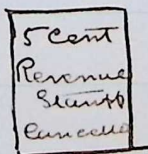 5 Cent
Revenue
Stamp
Cancelled